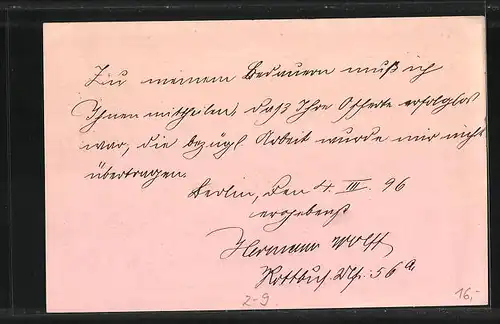 Zu meinem Bedauern muß ich
Ihnen mittheilen, daß Ihre Offerte erfolglos
war, die bezügl Arbeit wurde mir nicht
übertragen.
Berlin, den 4. III. 96
ergebenst
Hermann Wolff
Kottbus. Uf. 56a
2-9
16,-